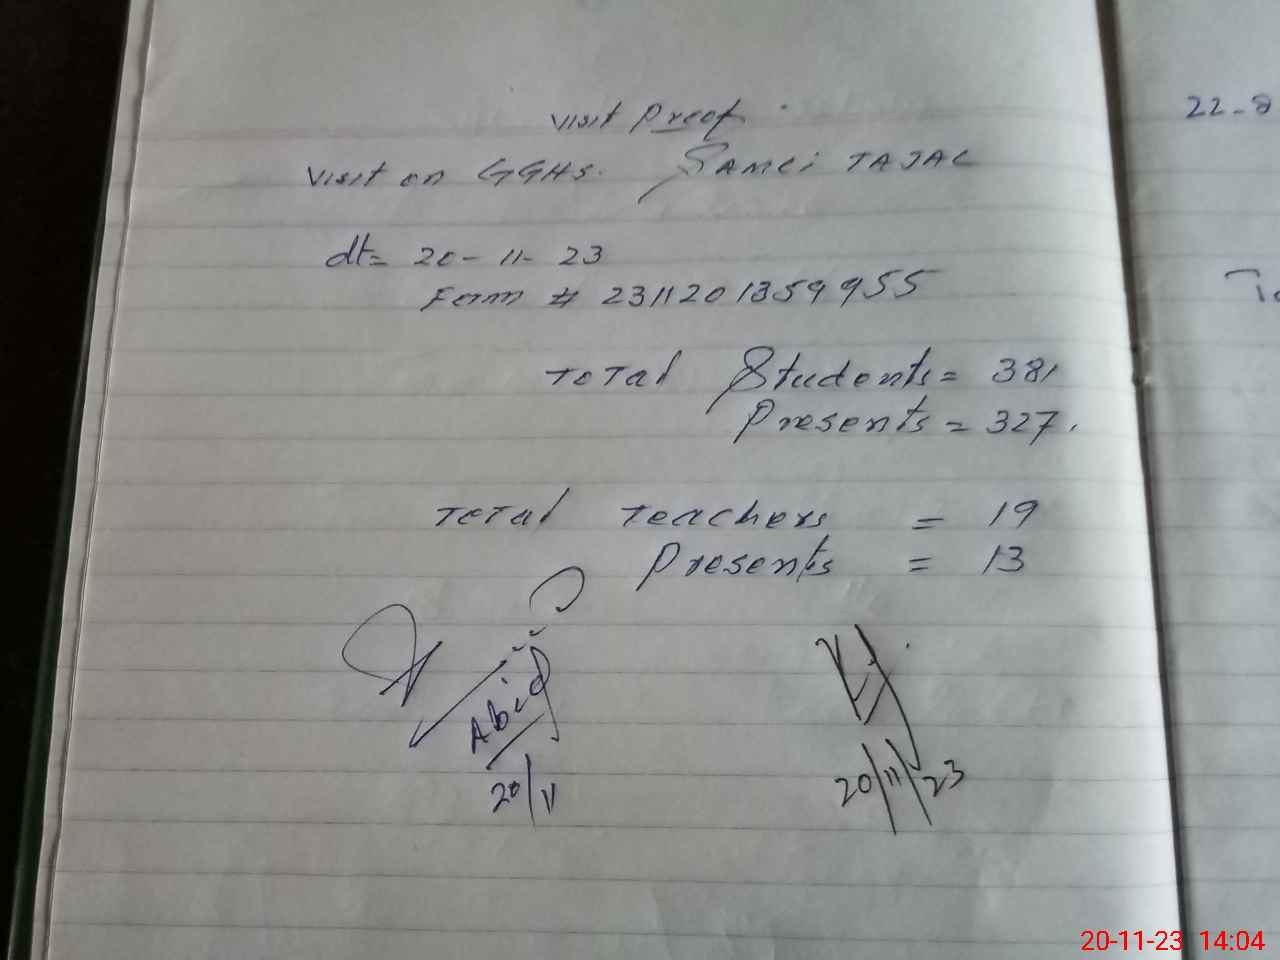 visit Proof
Visit on GGHS. SAMLi TAJAL
dt= 20-11-23
Form # 2311201359955
Total Students= 381
Presents = 327.
Total Teachers = 19
Presents = 13
Abid
20/11
20/11/23
22-8
20-11-23 14:04